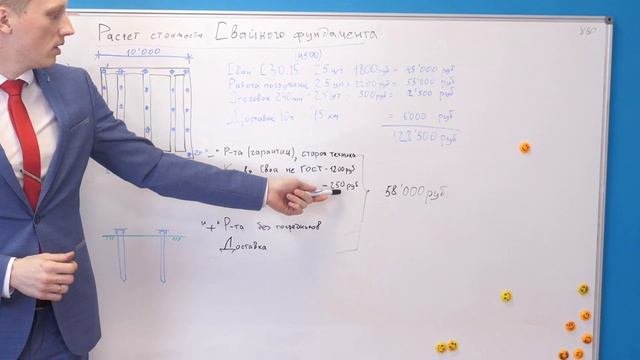 Расчет стоимости Свайного фундамента
830
10'000
(4500)
Сваи С30.15 - 25 шт 1800 руб = 45'000 руб
Работа погружение 25 шт 2200 руб = 55'000 руб
Оголовок - 25 шт - 500 руб =
Доставка 10т 15 км = 6'000 руб
128'500 руб
"-" Р-та (гарантии), старая техника
Сваи не ГОСТ - 1200 руб
- 250 руб
58'000 руб.
"+" Р-та без посредников
Доставка